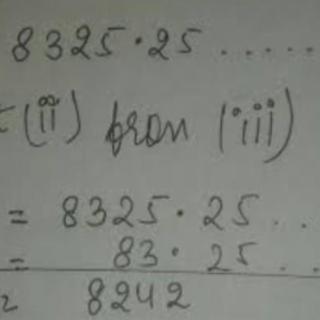 8325.25.....
(ii) from (iii)
= 8325.25..
= 83.25..
8242